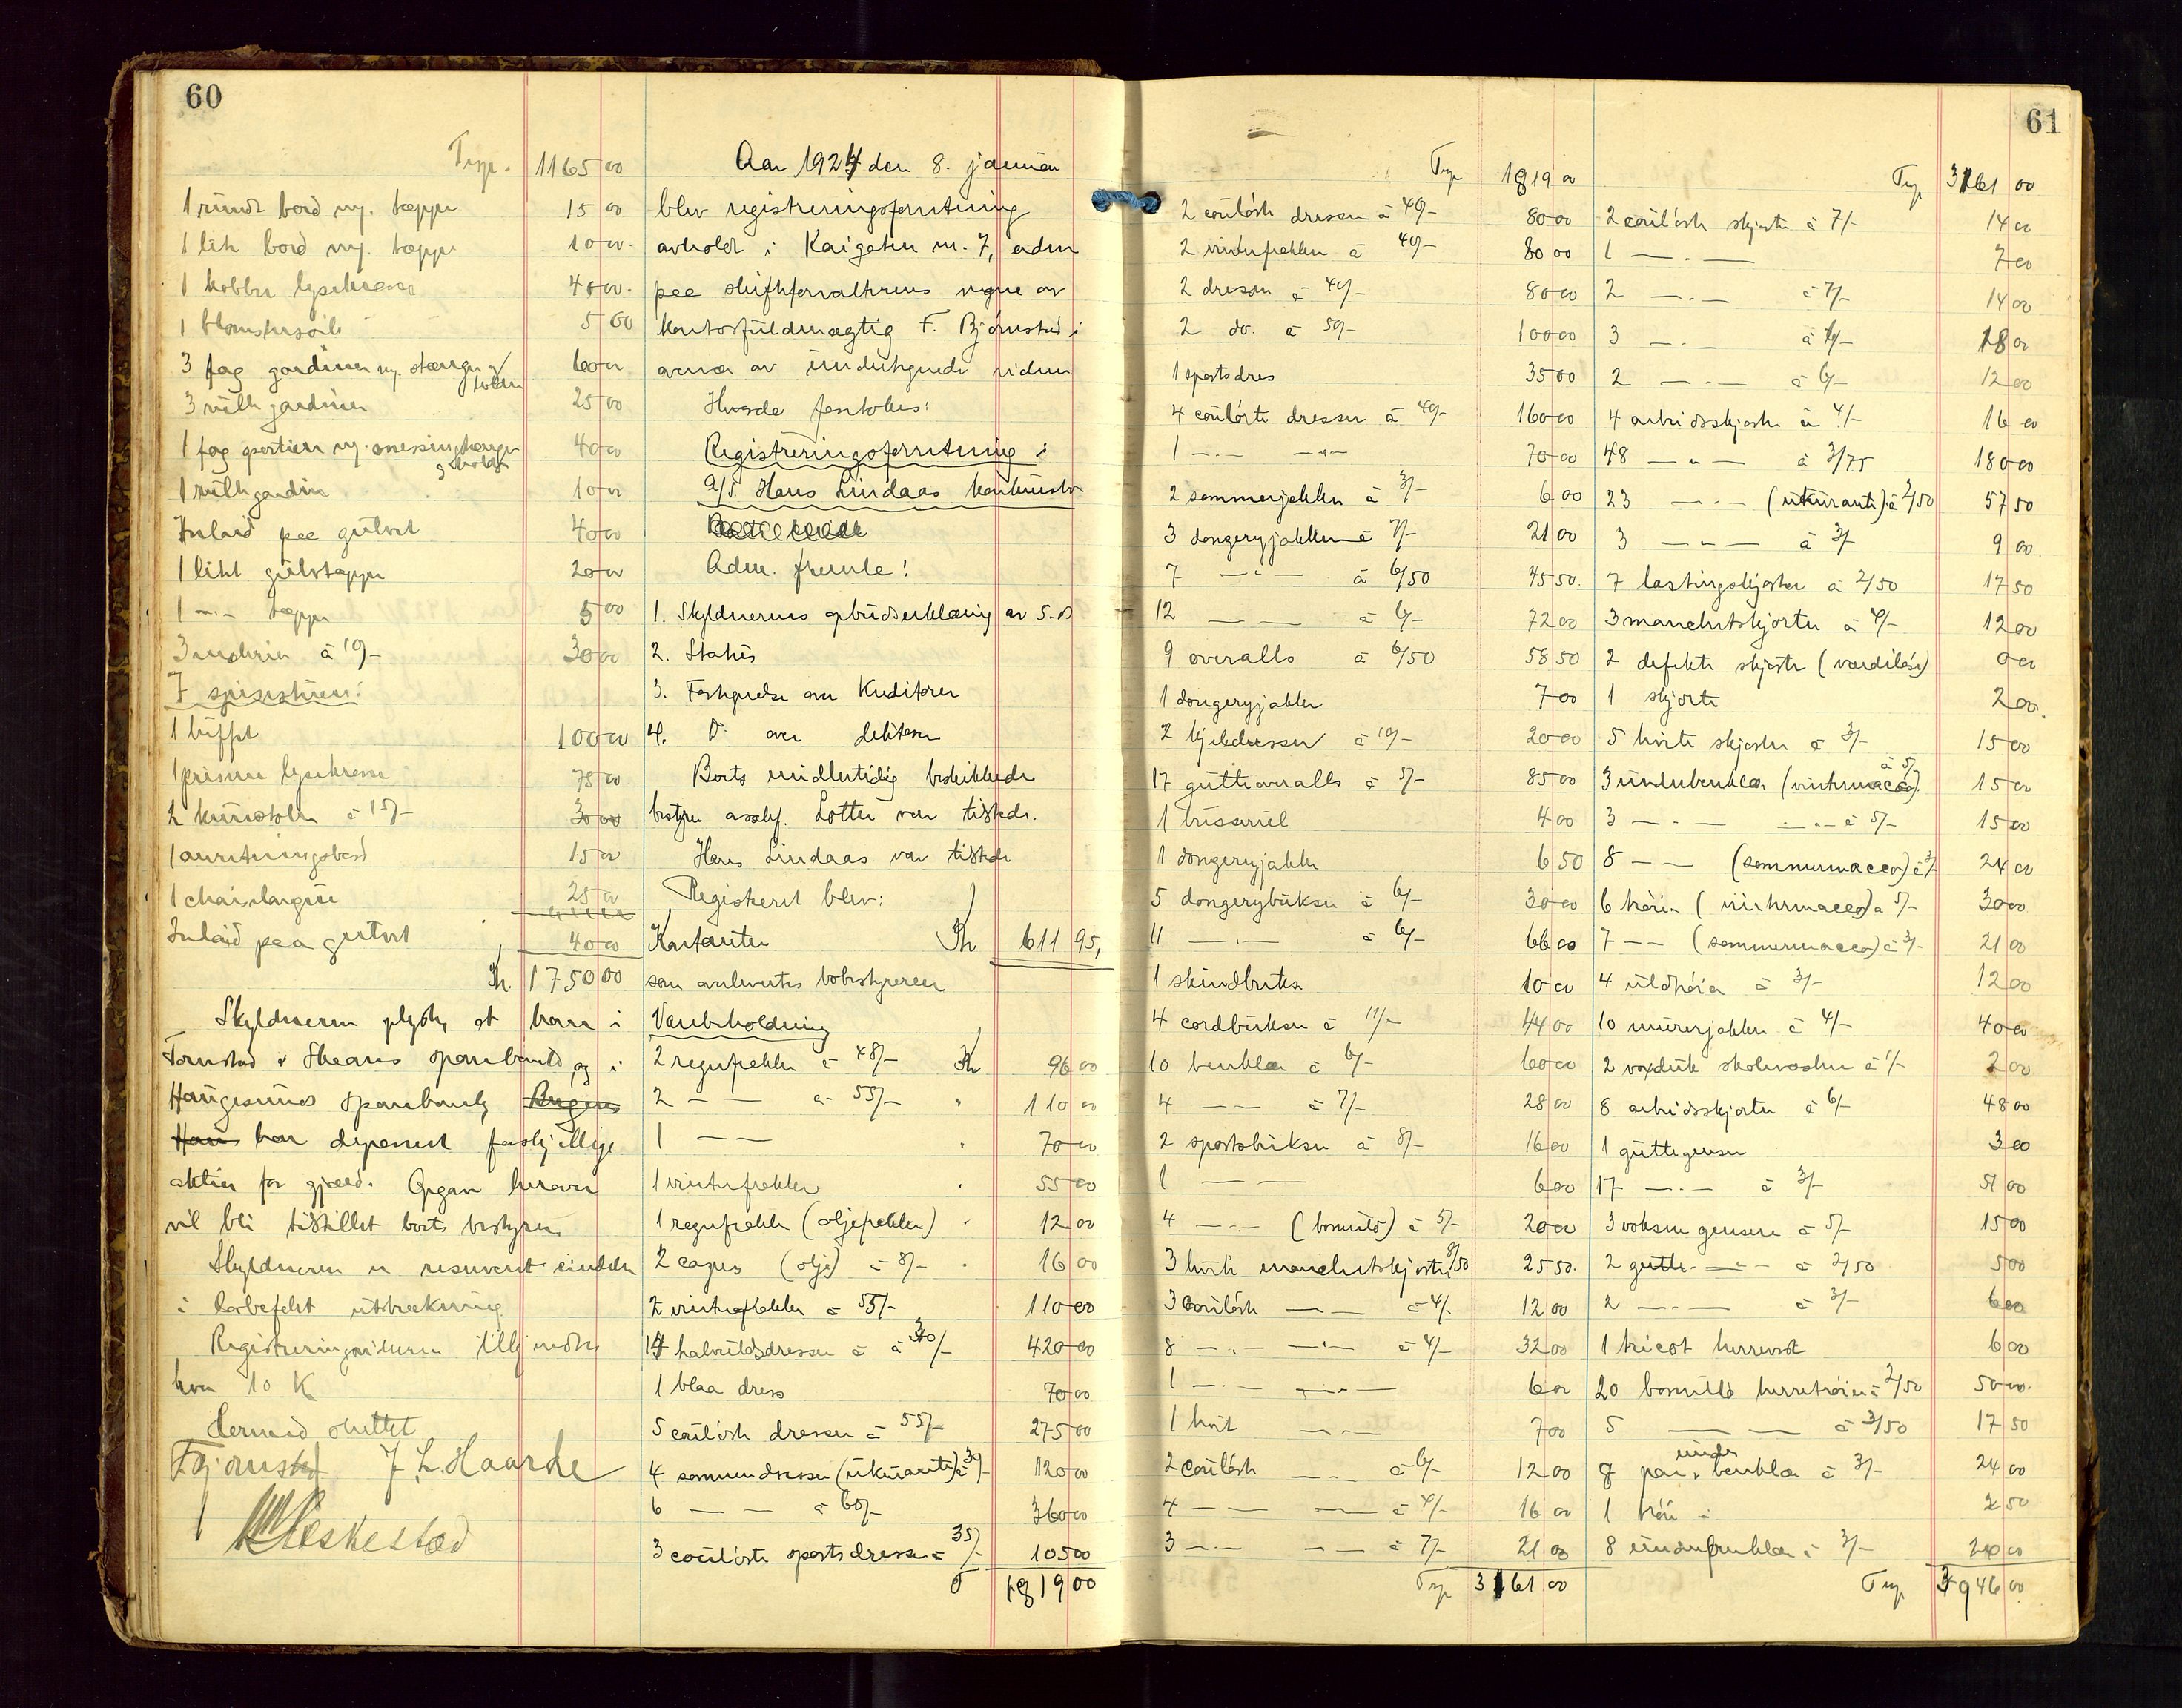 60
Trsp. 1165 00
1 rundt bord m. tæppe 15 00
1 lite bord m. tæppe 10 00
1 kobber lysekrone 40 00
1 blomstersøile 5 00
3 fag gardiner m. stænger og
holdere 60 00
3 rullegardiner 25 00
1 fag portierer m. messingstænger
g holder 40 00
1 rullegardin 10 00
Inlaid paa gulvet 40 00
1 litet gulvtæppe 20 00
1 —"— tæppe 5 00
3 malerier á 10/- 30 00
I spisestuen:
1 buffet 100 00
1 prisme lysekrone 75 00
2 kurvstoler á 15/- 30 00
1 anretningsbord 15 00
1 chaiselongue 25 00
Inlaid paa gulvet 40 00
Kr. 1750 00
Skyldneren oplyste, at han i
Torvestad & Skaares sparebank og i
Haugesunds sparebank
har deponert forskjellige
aktier for gjæld. Opgave herover
vil bli tilstillet boets bestyrer.
Skyldneren er reservert endel
i lovbefalet utstrækning
Registreringsvidnerne tilkjendtes
hver 10 K
Dermed sluttet
F. Bjørnstad J. L. Haarde
Aar 1924 den 8. januar
blev registreringsforretning
avholdt i Kaigaten nr. 7, adm
paa skifteforvalterens vegne av
kontorfuldmægtig F. Bjørnstad i
overvær av undertegnede vidner
Hvorda foretokes:
Registreringsforretning i
A/S. Hans Lindaas konkursbo
Adm. fremla:
1. Skyldnerens opbudserklæring av 5. ds
2. Status
3. Fortegnelse over Kreditorer
4. D over debitorer
Boets midlertidig beskikkede
bestyrer Lothe var tilstede.
Hans Lindaas var tilstede
Registrert blev:
Kontanter Kr 611 95,
som avleveres bobestyreren
Varebeholdning
2 regnfrakker á 48/- Kr 96 00
2 — — á 55/- " 110 00
1 — — " 70 00
1 vinterfrakke " 55 00
1 regnfrakke (oljefrakke) " 12 00
2 capes (olje) á 8/- " 16 00
2 vinterfrakker á 55/- 110 00
14 halvuldsdresser á á 30/- 420 00
1 blaa dress 70 00
5 coulørte dresser á 55/- 275 00
4 sommerdresser (ukurante) á 30/- 120 00
6 — — á 60/- 360 00
3 coulørte sportsdresser á 35/- 105 00
T 1819 00
61
Trsp 1819 00
2 coulørte dresser á 40/- 80 00
2 vinterfrakker á 40/- 80 00
2 dresser á 40/- 80 00
2 do. á 50/- 100 00
1 sportsdres 35 00
4 coulørte dresser á 40/- 160 00
1 —"— —"— 70 00
2 sommerjakker á 3/- 6 00
3 dongeryjakker á 7/- 21 00
7 —"— á 6/50 45 50
12 — — á 6/- 72 00
9 overalls á 6/50 58 50
1 dongeryjakke 7 00
2 kjeledresser á 10/- 20 00
17 gutteoveralls á 5/- 85 00
1 busserul 4 00
1 dongeryjakke 6 50
5 dongerybukser á 6/- 30 00
11 —"— á 6/- 66 00
1 skindbukse 10 00
4 cordbukser á 11/- 44 00
10 benklær á 6/- 60 00
4 — — á 7/- 28 00
2 sportsbukser á 8/- 16 00
1 — — 6 00
4 —"— (bomuld) á 5/- 20 00
3 hvite manchetskjorter 8/50 25 50
3 coulørte — — á 4/- 12 00
8 —"— —"— á 4/- 32 00
1 —"— — — 6 00
1 hvit —"— 7 00
2 coulørte — — á 6/- 12 00
4 — — — — á 4/- 16 00
3 — — — — á 7/- 21 00
Trsp 3161 00
Trsp 3161 00
2 coulørte skjorter á 7/- 14 00
1 —"— 7 00
2 —"— á 7/- 14 00
3 —"— á 6/- 18 00
2 —"— á 6/- 12 00
4 arbeidsskjorter á 4/- 16 00
48 —"— á 3/75 180 00
23 —"— (ukurante) á 2/50 57 50
3 —"— á 3/- 9 00
7 lastingskjorter á 2/50 17 50
3 manchetskjorter á 4/- 12 00
2 defekte skjorter (værdiløse) 0 00
1 skjorte 2 00
5 hvite skjorter á 3/- 15 00
3 underbenklær (vintermacco) á 5/- 15 00
3 —"— —"— á 5/- 15 00
8 — — (sommermacco) á 3/- 24 00
6 trøier (vintermacco) á 5/- 30 00
7 — — (sommermacco) á 3/- 21 00
4 uldtrøier á 3/- 12 00
10 murerjakker á 4/- 40 00
2 voxduk skolevesker á 1/- 2 00
8 arbeidsskjorter á 6/- 48 00
1 guttegenser 3 00
17 —"— á 3/- 51 00
3 voksen gensere á 5/- 15 00
2 gutte —"— á 2/50 5 00
2 —"— á 3/- 6 00
1 tricot herrevest 6 00
20 bomulds herretrøier á 2/50 50 00
5 — — — á 3/50 17 50
8 par under benklær á 3/- 24 00
1 trøie 2 50
8 underbenklær á 3/-
Trsp 3946 00